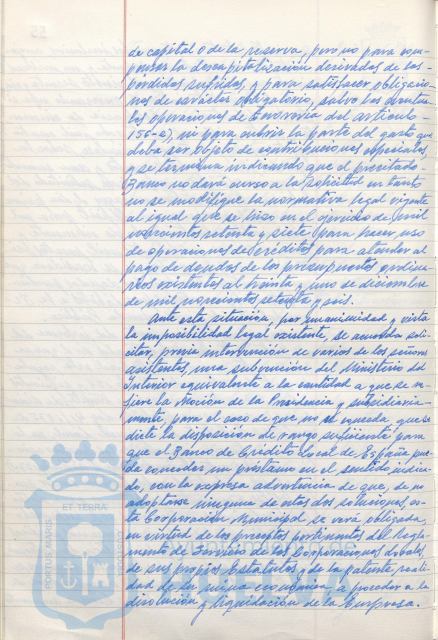 de capital o de la reserva, pero no para com-
pensar la descapitalización derivadas de las
pérdidas sufridas, y para satisfacer obligacio-
nes de carácter obligatorio, salvo las eventua-
les operaciones de Tesorería del artículo -
156-e), ni para cubrir la parte del gasto que
deba ser objeto de contribuciones especiales,
y se termina indicando que el precitado -
Banco no dará curso a la solicitud en tanto
no se modifique la normativa legal vigente
al igual que se hizo en el ejercicio de mil
novecientos setenta y siete, para hacer uso
de operaciones de créditos para atender al
pago de deudas de los presupuestos ordina-
rios existentes al treinta y uno de diciembre
de mil novecientos setenta y seis.
Ante esta situación, por unanimidad, y vista
la imposibilidad legal existente, se acuerda soli-
citar, previa intervención de varios de los señores
asistentes, una subvención del Ministerio del
Interior equivalente a la cantidad a que se re-
fiere la Moción de la Presidencia y subsidiaria-
mente, para el caso de que no se conceda, que se
dicte la disposición de rango suficiente para
que el Banco de Crédito Local de España pue-
da conceder un préstamo en el sentido indica-
do, con la expresa advertencia de que, de no
adoptarse ninguna de estas dos soluciones es-
ta Corporación Municipal se verá obligada,
en virtud de los preceptos pertinentes del Regla-
mento de Servicio de las Corporaciones Locales,
de sus propios Estatutos y de la patente reali-
dad de su ruina económica a proceder a la
disolución y liquidación de la Empresa.
ET TERRA
PORTUS MARIS
CUSTODIA
HUELVA